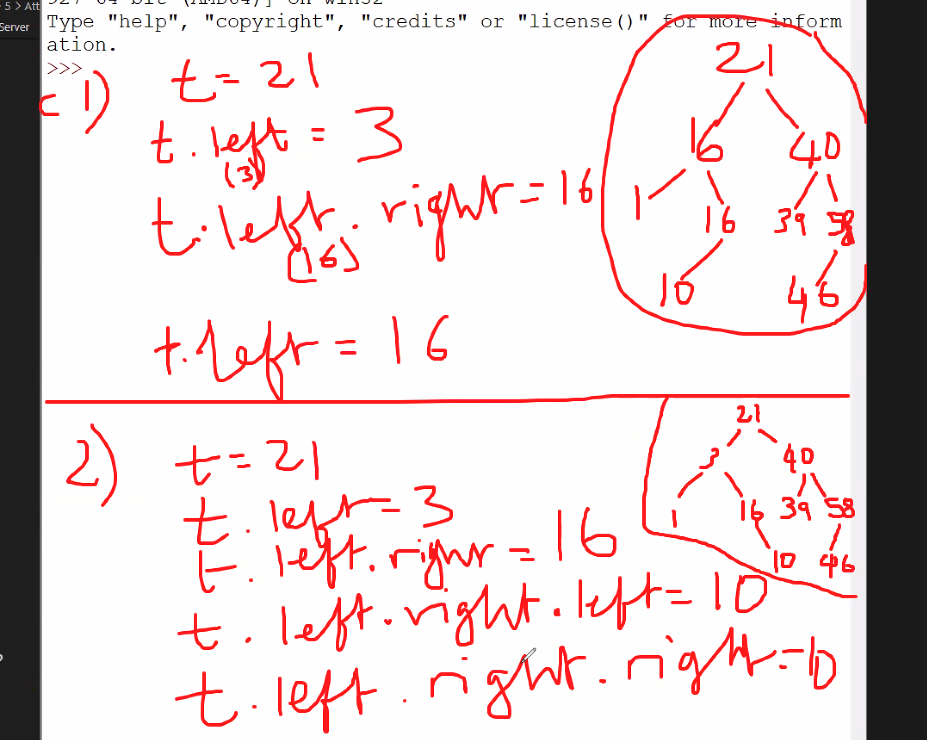 5 > Att
Server
Type "help", "copyright", "credits" or "license()" for more inform
ation.
>>>
1)
t = 21
t.left = 3
(3)
t.left.right = 16
(16)
t.left = 16
21
16 40
1 16 39 58
10 46
2)
t = 21
t.left = 3
t.left.right = 16
t.left.right.left = 10
t.left.right.right = 10
21
3 40
1 16 39 58
10 46